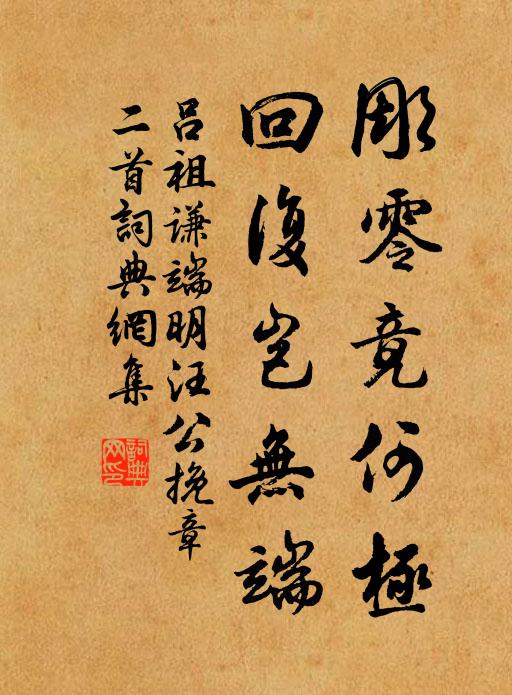 彫零竟何極
回復豈無端
呂祖謙端明汪公挽章
二首詞典網集
詞典
网印